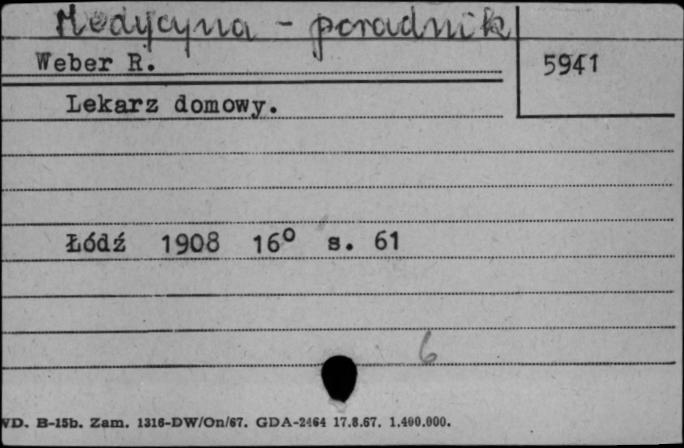 Medycyna - poradnik
Weber R.
5941
Lekarz domowy.
Łódź 1908 16° s. 61
6
VD. B-15b. Zam. 1316-DW/On/67. GDA-2464 17.8.67. 1.400.000.